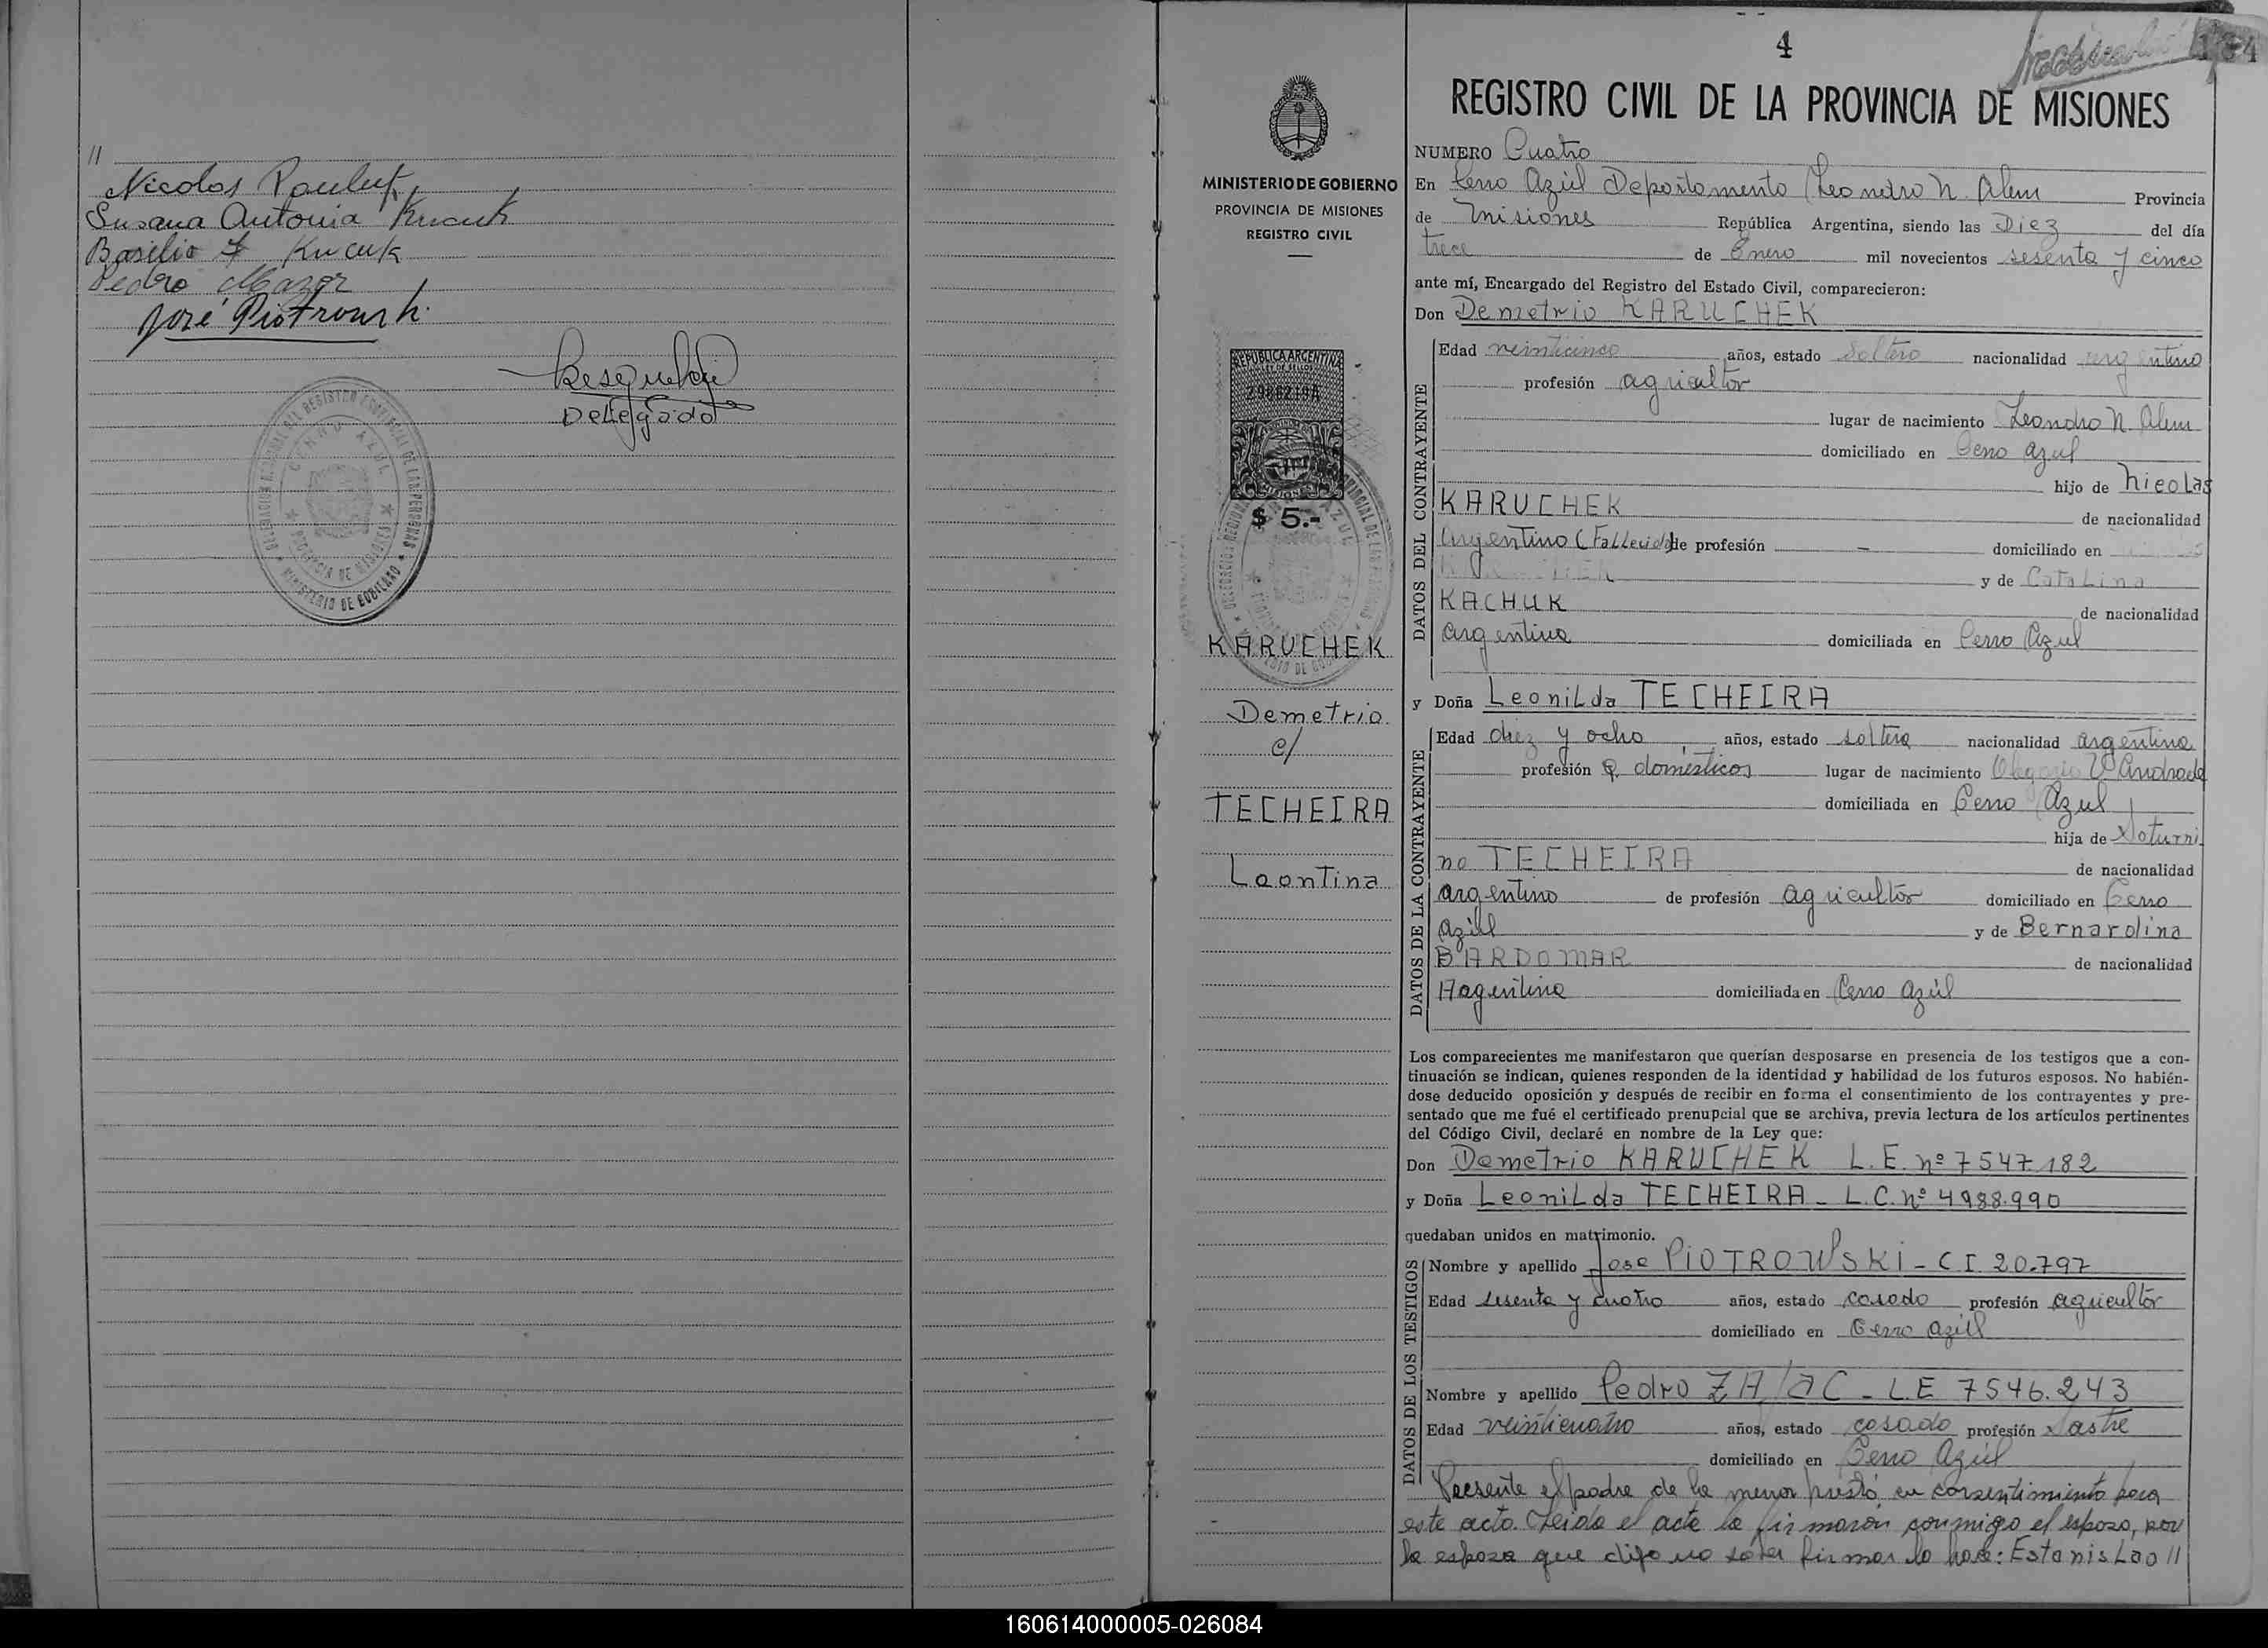 //
Nicolas
Susana Antonia Kucuk
Basilio Kucuk
Pedro Mazur
José Piotrowsk
Delegado
CERRO AZUL
PROVINCIA DE MISIONES
MINISTERIO DE GOBIERNO
4
REGISTRO CIVIL DE LA PROVINCIA DE MISIONES
MINISTERIO DE GOBIERNO
PROVINCIA DE MISIONES
REGISTRO CIVIL
REPUBLICA ARGENTINA
LEY DE SELLOS
$ 5.-
KARUCHEK
Demetrio
c/
TECHEIRA
Leontina
NUMERO Cuatro
En Cerro Azul Departamento Leandro N. Alem Provincia
de Misiones República Argentina, siendo las Diez del día
trece de Enero mil novecientos sesenta y cinco
ante mí, Encargado del Registro del Estado Civil, comparecieron:
Don Demetrio KARUCHEK
DATOS DEL CONTRAYENTE
Edad veinticinco años, estado soltero nacionalidad argentino
profesión agricultor
lugar de nacimiento Leandro N. Alem
domiciliado en Cerro Azul
hijo de Nicolas
KARUCHEK de nacionalidad
argentino (Fallecido) de profesión — domiciliado en
y de Catalina
KACHUK de nacionalidad
argentina domiciliada en Cerro Azul
y Doña Leonilda TECHEIRA
DATOS DE LA CONTRAYENTE
Edad diez y ocho años, estado soltera nacionalidad argentina
profesión Q. domésticos lugar de nacimiento Olegario V. Andrade
domiciliada en Cerro Azul
hija de Saturni
no TECHEIRA de nacionalidad
argentino de profesión agricultor domiciliado en Cerro
Azúl y de Bernardina
BARDOMAR de nacionalidad
Argentina domiciliada en Cerro Azúl
Los comparecientes me manifestaron que querían desposarse en presencia de los testigos que a con-
tinuación se indican, quienes responden de la identidad y habilidad de los futuros esposos. No habién-
dose deducido oposición y después de recibir en forma el consentimiento de los contrayentes y pre-
sentado que me fué el certificado prenupcial que se archiva, previa lectura de los artículos pertinentes
del Código Civil, declaré en nombre de la Ley que:
Don Demetrio KARUCHEK L.E. nº 7547.182
y Doña Leonilda TECHEIRA - L.C. nº 4988.990
quedaban unidos en matrimonio.
DATOS DE LOS TESTIGOS
Nombre y apellido Jose PIOTROWSKI - C.I. 20.797
Edad sesenta y cuatro años, estado casado profesión agricultor
domiciliado en Cerro Azúl
Nombre y apellido Pedro ZAJAC - L.E 7546.243
Edad veinticuatro años, estado casado profesión Sastre
domiciliado en Cerro Azúl
Presente el padre de la menor prestó su consentimiento para
este acto. Leida el acta la firmaron conmigo el esposo, por
la esposa que dijo no saber firmar lo hace: Estanislao //
160614000005-026084